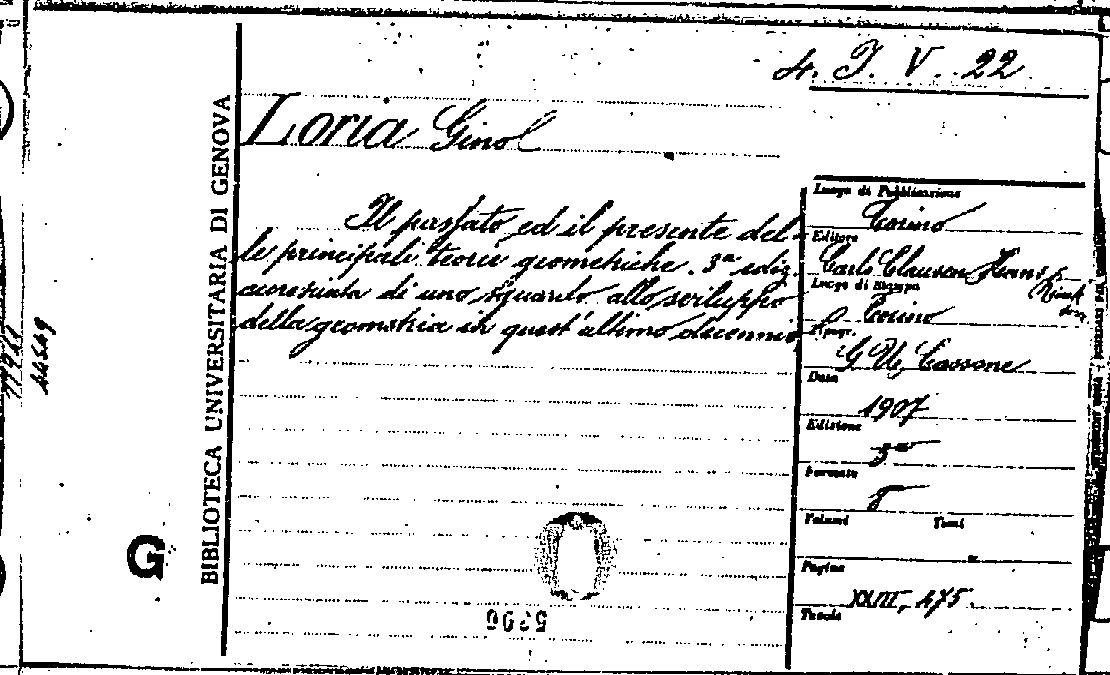 4. I. V. 22
BIBLIOTECA UNIVERSITARIA DI GENOVA
Loria Ginol
Il passato ed il presente del-
le principali teorie geometriche. 3ª ediz.
accresciuta di uno sguardo allo sviluppo
della geometria in quest'ultimo decennio
Luogo di Pubblicazione
Torino
Editore
Carlo Clausen Hans
Luogo di Stampa
Torino
Tipogr.
G. U. Cassone
Data
1907
Edizione
3ª
Formato
8°
Volumi Tomi
Pagine
XXIII, 475.
Tavole
G